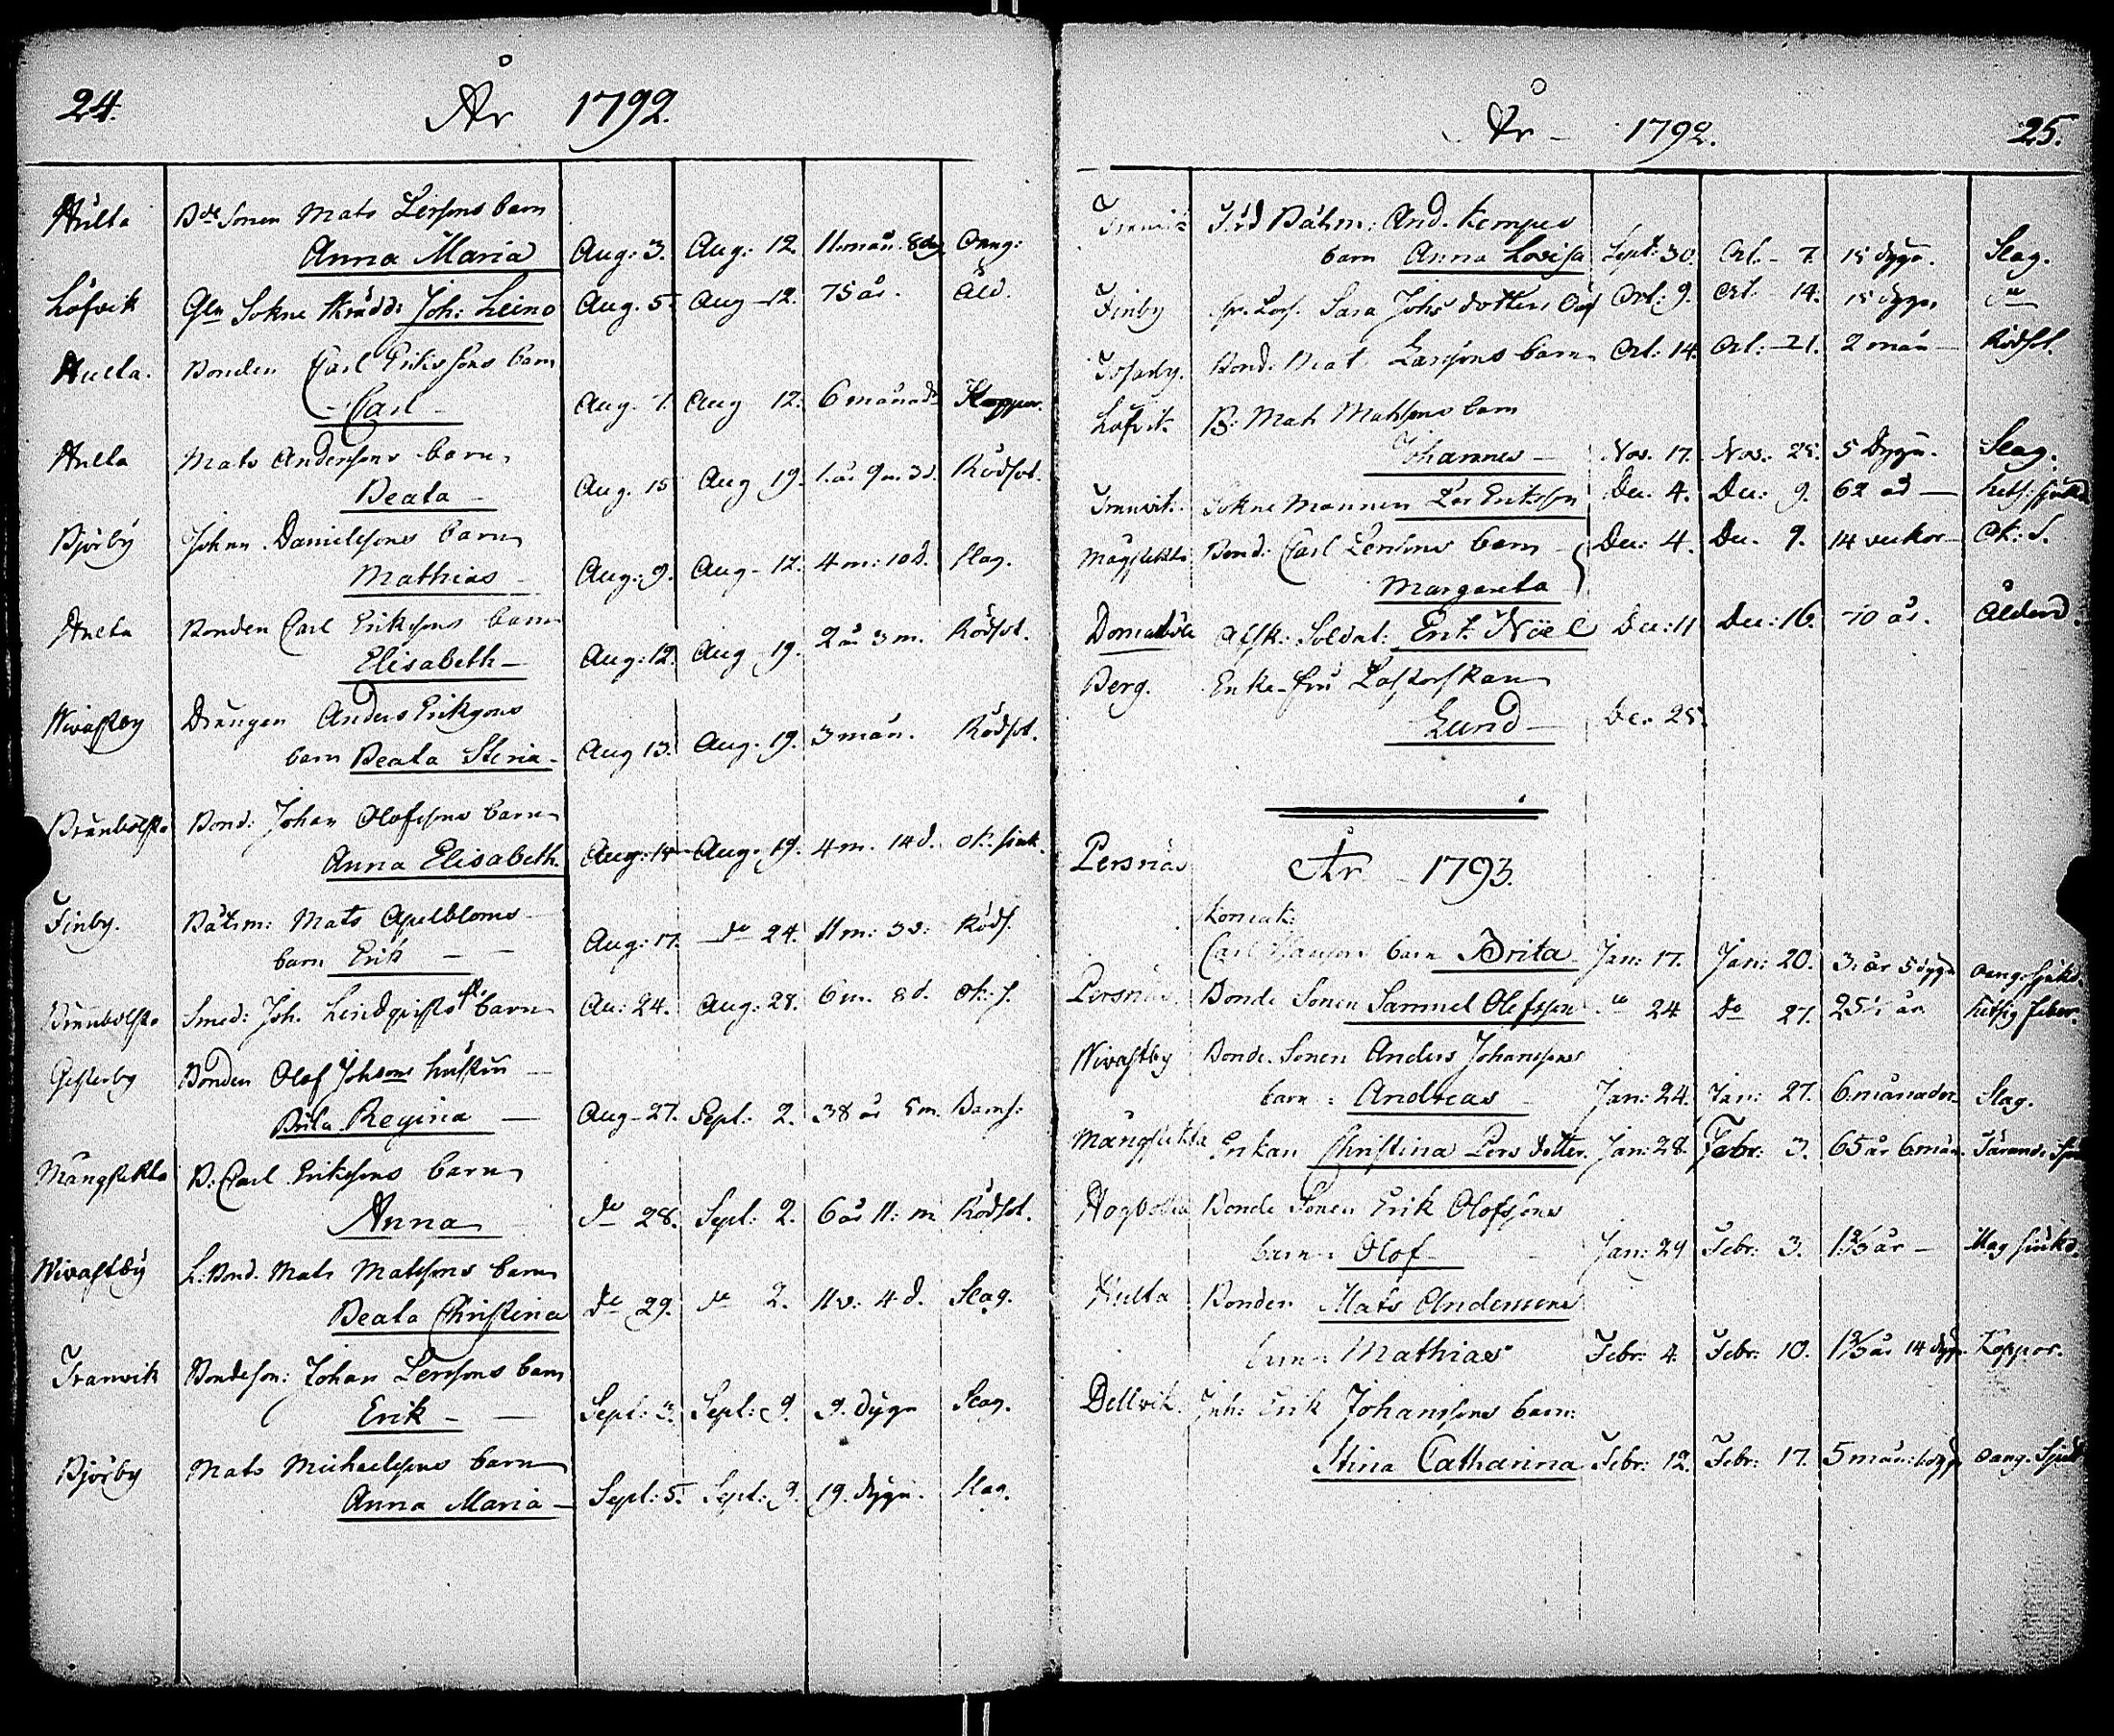 24.
År 1792.
Hulta Bde Sonen Mats Persons barn
Anna Maria Aug: 3. Aug: 12. 11 mån. 8 dag. Oang:
Löfvik Gln Sokne skrädd: Joh: Leino Aug. 5 Aug 12. 75 år. Åld.
Hulta. Bonden Carl Erikssons barn
Carl Aug. 7. Aug 12. 6 månad Koppor.
Hulta Mats Anderssons barn
Beata Aug. 15 Aug 19. 1 år 9 m. 3 d. Rödsot.
Björby Johan Danielssons barn
Mathias Aug: 9. Aug 12. 4 m: 10 d. Slag.
Hulta Bonden Carl Erikssons barn
Elisabeth Aug: 12. Aug 19. 2 å 3 m. Rödsot.
Nivastby Drängen Anders Eriksons
barn Beata Stina Aug 13. Aug. 19. 3 mån. Rödsot.
Brunbolsta Bond: Johan Olofssons barn
Anna Elisabeth Aug: 14 Aug. 19. 4 m. 14 d. ok. siuk.
Finby. Båtsm: Mats Apelbloms
barn Erik Aug: 17. do 24. 11 m: 3 v: Röds.
Brunbolsta Smed: Joh. Lindqvists barn Au: 24. Aug: 28. 6 m. 8 d. ok: s.
Gesterby Bonden Olof Johsons hustru
Brita Regina Aug 27. Sept: 2. 38 år 5 m. Barns:
Mangstekta B: Carl Erikssons barn
Anna do 28. Sept: 2. 6 år 11: m Rödsot.
Nivastby L: Bond. Mats Matssons barn
Beata Christina do 29. do 2. 11 v: 4 d. Slag.
Tranvik Bondeson: Johan Perssons barn
Erik Sept: 3. Sept: 9. 9. dygn Slag.
Björby Mats Michaelssons barn
Anna Maria Sept: 5. Sept: 9. 19. dygn. Slag.
År 1792. 25.
Tranvik Båtsm: And. Kempes
barn Anna Lovisa Sept: 30. Oct. 7. 15 dygn. Slag.
Finby Sara Johs dotters Oct: 9. Oct. 14. 15 dygn do
Bond: Mat Larssons barn Oct: 14. Oct: 21. 2 mån Rödsot.
Löfvik B: Mats Mattssons barn
Johannes Nov. 17. Nov. 25. 5 dygn. Slag.
Tranvik. Sokne Mannen Per Eriksson Dec: 4. Dec: 9. 62 år
Mågstekta Bond: Carl Perssons barn Dec: 4. Dec. 9. 14 veckor ok: S.
Margareta
Domarböle Afsk: Soldat: Erik Nöel Dec: 11 Dec: 16. 70 år. Ålderd.
Berg. Enke-fru Pastorskan
Lund Dec. 25.
Persnäs År 1793.
Carl barn Brita Jan: 17. Jan: 20. 3: år 5 dygn oang: sjukd.
Persnäs Bonde Sonen Samuel Olofsson do 24 do 27. 25 1/2 år hitsig feber.
Nivastby Bonde. Sonen Anders Johanssons
barn: Andreas Jan: 24. Jan: 27. 6 månader Slag.
Mangstekta Enkan Christina Pers dotter Jan: 28. Febr: 3. 65 år 6 mån. Tärande
Bonde Sonen Erik Olofssons
barn: Olof Jan: 29 Febr: 3. 1 2/3 år Mag siukd.
Hulta Bonden Mats Anderssons
barn: Mathias Febr: 4. Febr: 10. 1 2/3 år 14 dygn Koppor.
Dellvik. Inh: Erik Johanssons barn:
Stina Catharina Febr: 12. Febr: 17. 5 mån: oang. Sjukd